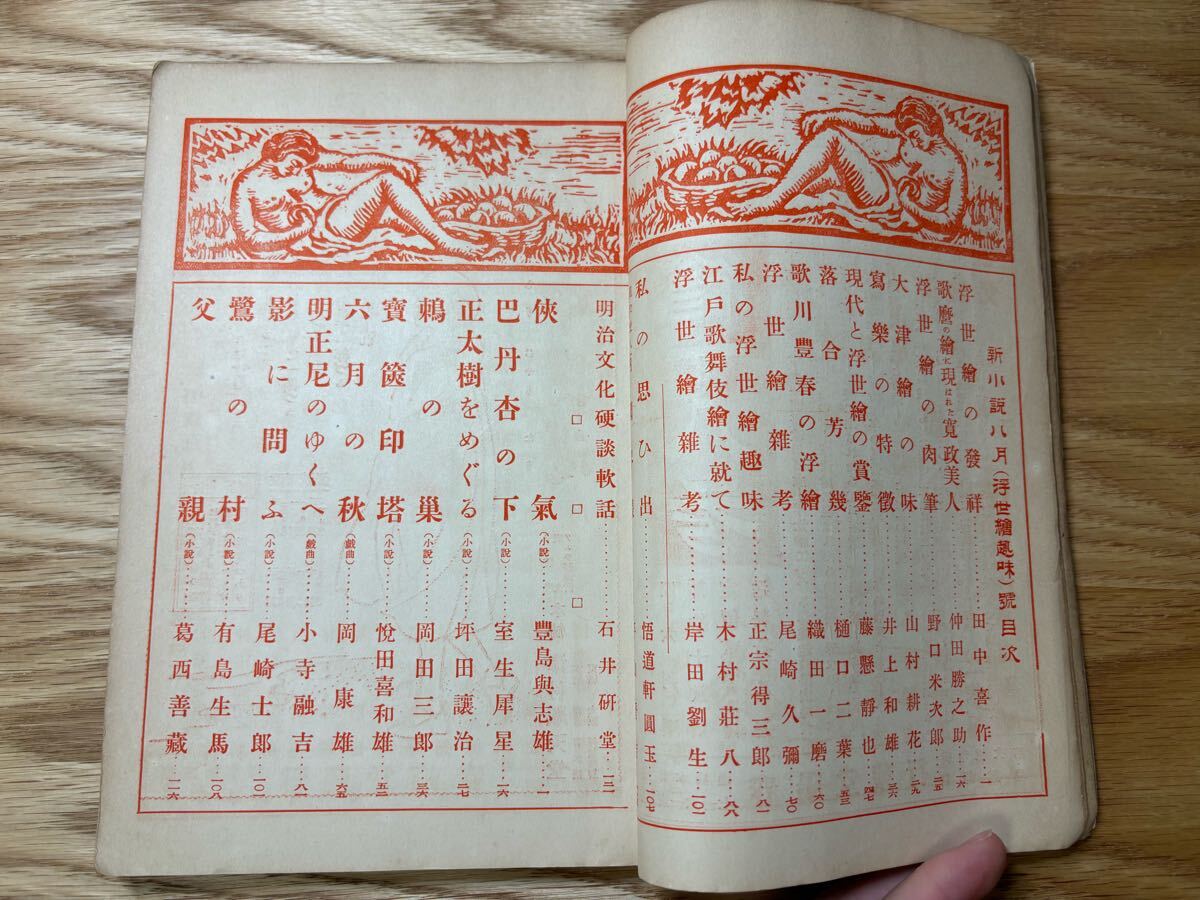 新小説八月(浮世繪趣味)號目次
浮世繪の發祥……田中喜作…一
歌麿の繪に現はれた寬政美人……仲田勝之助…一六
浮世繪の肉筆……野口米次郎…二五
大津繪の味……山村耕花…二九
寫樂の特徴……井上和雄…三六
現代と浮世繪の賞鑒……藤懸靜也…四七
落合芳幾……樋口二葉…五三
歌川豐春の浮繪……織田一磨…六〇
浮世繪雜考……尾崎久彌…七〇
私の浮世繪趣味……正宗得三郎…八一
江戸歌舞伎繪に就て……木村莊八…八八
浮世繪雜考……岸田劉生…一〇一
私の思ひ出……悟道軒圓玉…一〇七
明治文化硬談軟話……石井研堂…一三一
□□□
俠氣(小説)……豐島與志雄…一
巴丹杏の下……室生犀星…一六
正太樹をめぐる(小説)……坪田讓治…二七
鶉の巢(小説)……岡田三郎…三六
寶篋印塔(小説)……悅田喜和雄…五二
六月の秋(戲曲)……岡康雄…六五
明正尼のゆくへ(戲曲)……小寺融吉…八一
影に問ふ(小説)……尾崎士郎…一〇一
鷺の村(小説)……有島生馬…一〇八
父親(小説)……葛西善藏…一一六